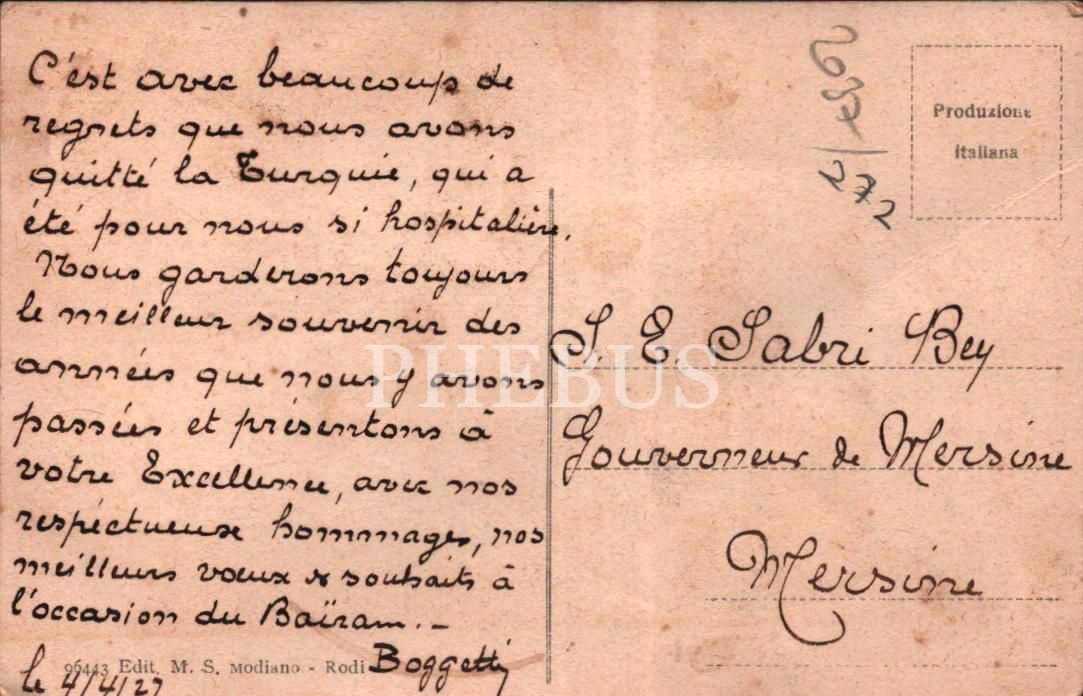 C'est avec beaucoup de
regrets que nous avons
quitté la Turquie, qui a
été pour nous si hospitalière.
Nous garderons toujours
le meilleur souvenir des
années que nous y avons
passées et présentons à
votre Excellence, avec nos
respéctueuse hommages, nos
meilleurs vœux & souhaits à
l'occasion du Baïram. -
Boggetti
le 4/4/27
96443 Edit. M. S. Modiano - Rodi
Produzione
Italiana
272
S. E. Sabri Bey
Gouverneur de Mersine
Mersine
PHEBUS